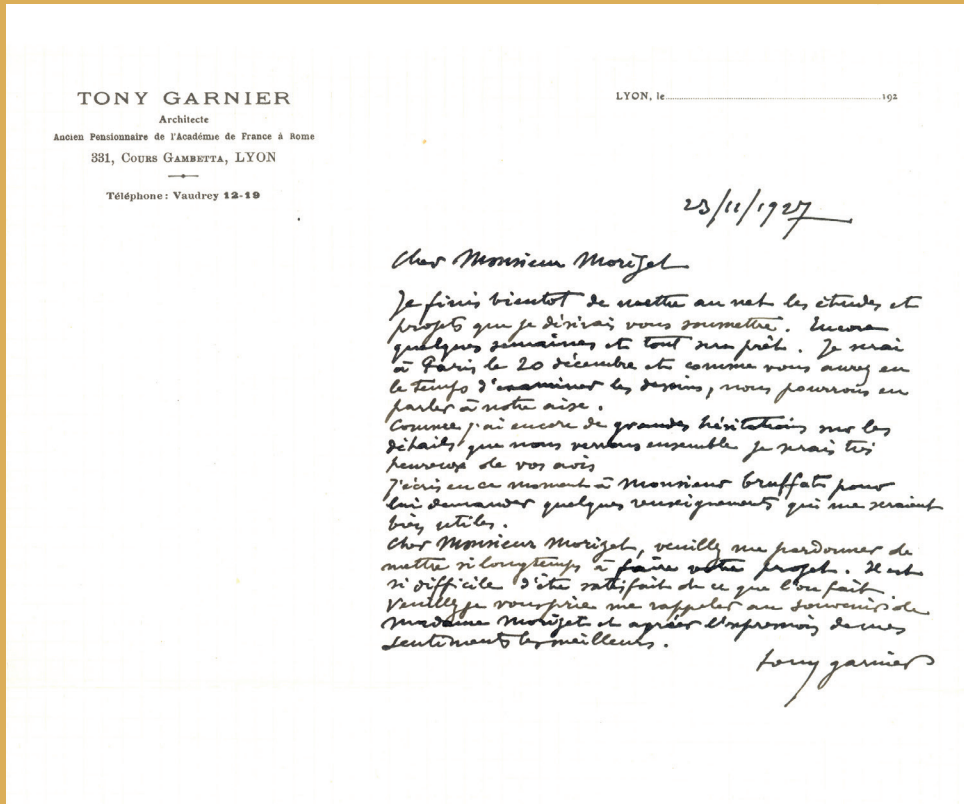 TONY GARNIER
Architecte
Ancien Pensionnaire de l'Académie de France à Rome
331, COURS GAMBETTA, LYON
Téléphone : Vaudrey 12-19
LYON, le 192
23/11/1927
Cher Monsieur Morizet
Je finis bientot de mettre au net les études et
projets que je désirais vous soumettre. Encore
quelques semaines et tout sera prêt. Je serai
à Paris le 20 décembre et comme vous aurez eu
le temps d'examiner les dessins, nous pourrons en
parler à notre aise.
Comme j'ai encore de grandes hésitations sur les
détails que nous verrons ensemble je serais très
heureux de vos avis
J'écris en ce moment à Monsieur bruffats pour
lui demander quelques renseignements qui me seraient
bien utiles.
Cher Monsieur Morizet, veuillez me pardonner de
mettre si longtemps à faire votre projet. Il est
si difficile d'être satisfait de ce que l'on fait.
Veuillez je vous prie me rappeler au souvenir de
Madame Morizet et agréer l'expression de mes
sentiments les meilleurs.
tony garnier